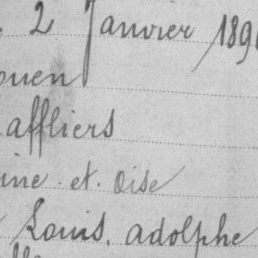 2 Janvier 189
ouen
affliers
ine et Oise
Louis, adolphe